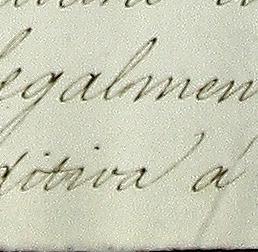 legalmen
ditiva á